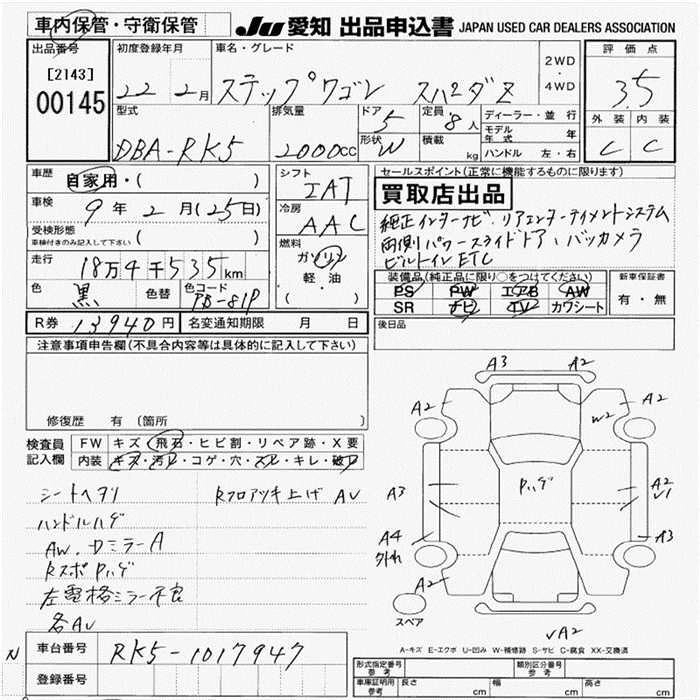 車内保管・守衛保管
JU 愛知 出品申込書 JAPAN USED CAR DEALERS ASSOCIATION
出品番号
[2143]
00145
初度登録年月
22 2月
車名・グレード
ステップワゴン スパーダZ
2WD
・
4WD
評価点
3.5
外装 内装
C C
型式
DBA-RK5
排気量
2000cc
ドア
5
形状
W
定員
8人
積載
kg
ディーラー・並行
モデル年式 年
ハンドル 左・右
車歴
自家用・( )
車検
9年 2月 (25日)
受検形態
車検付きのみ記入して下さい ( )
走行
18万4千535km
色
黒
色替
色コード
PB-81P
シフト
IAT
冷房
AAC
燃料
ガソリン
軽・油
( )
R券 13940円
名変通知期限 月 日
セールスポイント(正常に機能するものに限ります)
買取店出品
純正インターナビ、リアエンターテイメントシステム
両側パワースライドドア、バックカメラ
ビルトインETC
装備品(純正品に限り○をつけてください)
PS PW エアB AW
SR ナビ TV カワシート
新車保証書
有・無
後日品
注意事項申告欄(不具合内容等は具体的に記入して下さい)
修復歴 有 (箇所 )
検査員
記入欄
FW キズ・飛石・ヒビ割・リペア跡・X要
内装 キズ・汚レ・コゲ・穴・スレ・キレ・破レ
シートヘタリ
ハンドルハゲ
AW、ドミラーA
RスポPハゲ
左電格ミラー不良
各AU
RフロアツキLげ AU
A3 A2
A2 A2
W2
A3 Pハゲ A2
U1
A4
外れ
A3
A2
スペア
√A2
A-キズ E-エクボ U-凹み W-補修跡 S-サビ C-腐食 XX-交換済
N
車台番号 RK5-1017947
登録番号
形式指定番号
参考
類別区分番号
参考
車庫証明用
参考
長さ cm 幅 cm 高さ cm